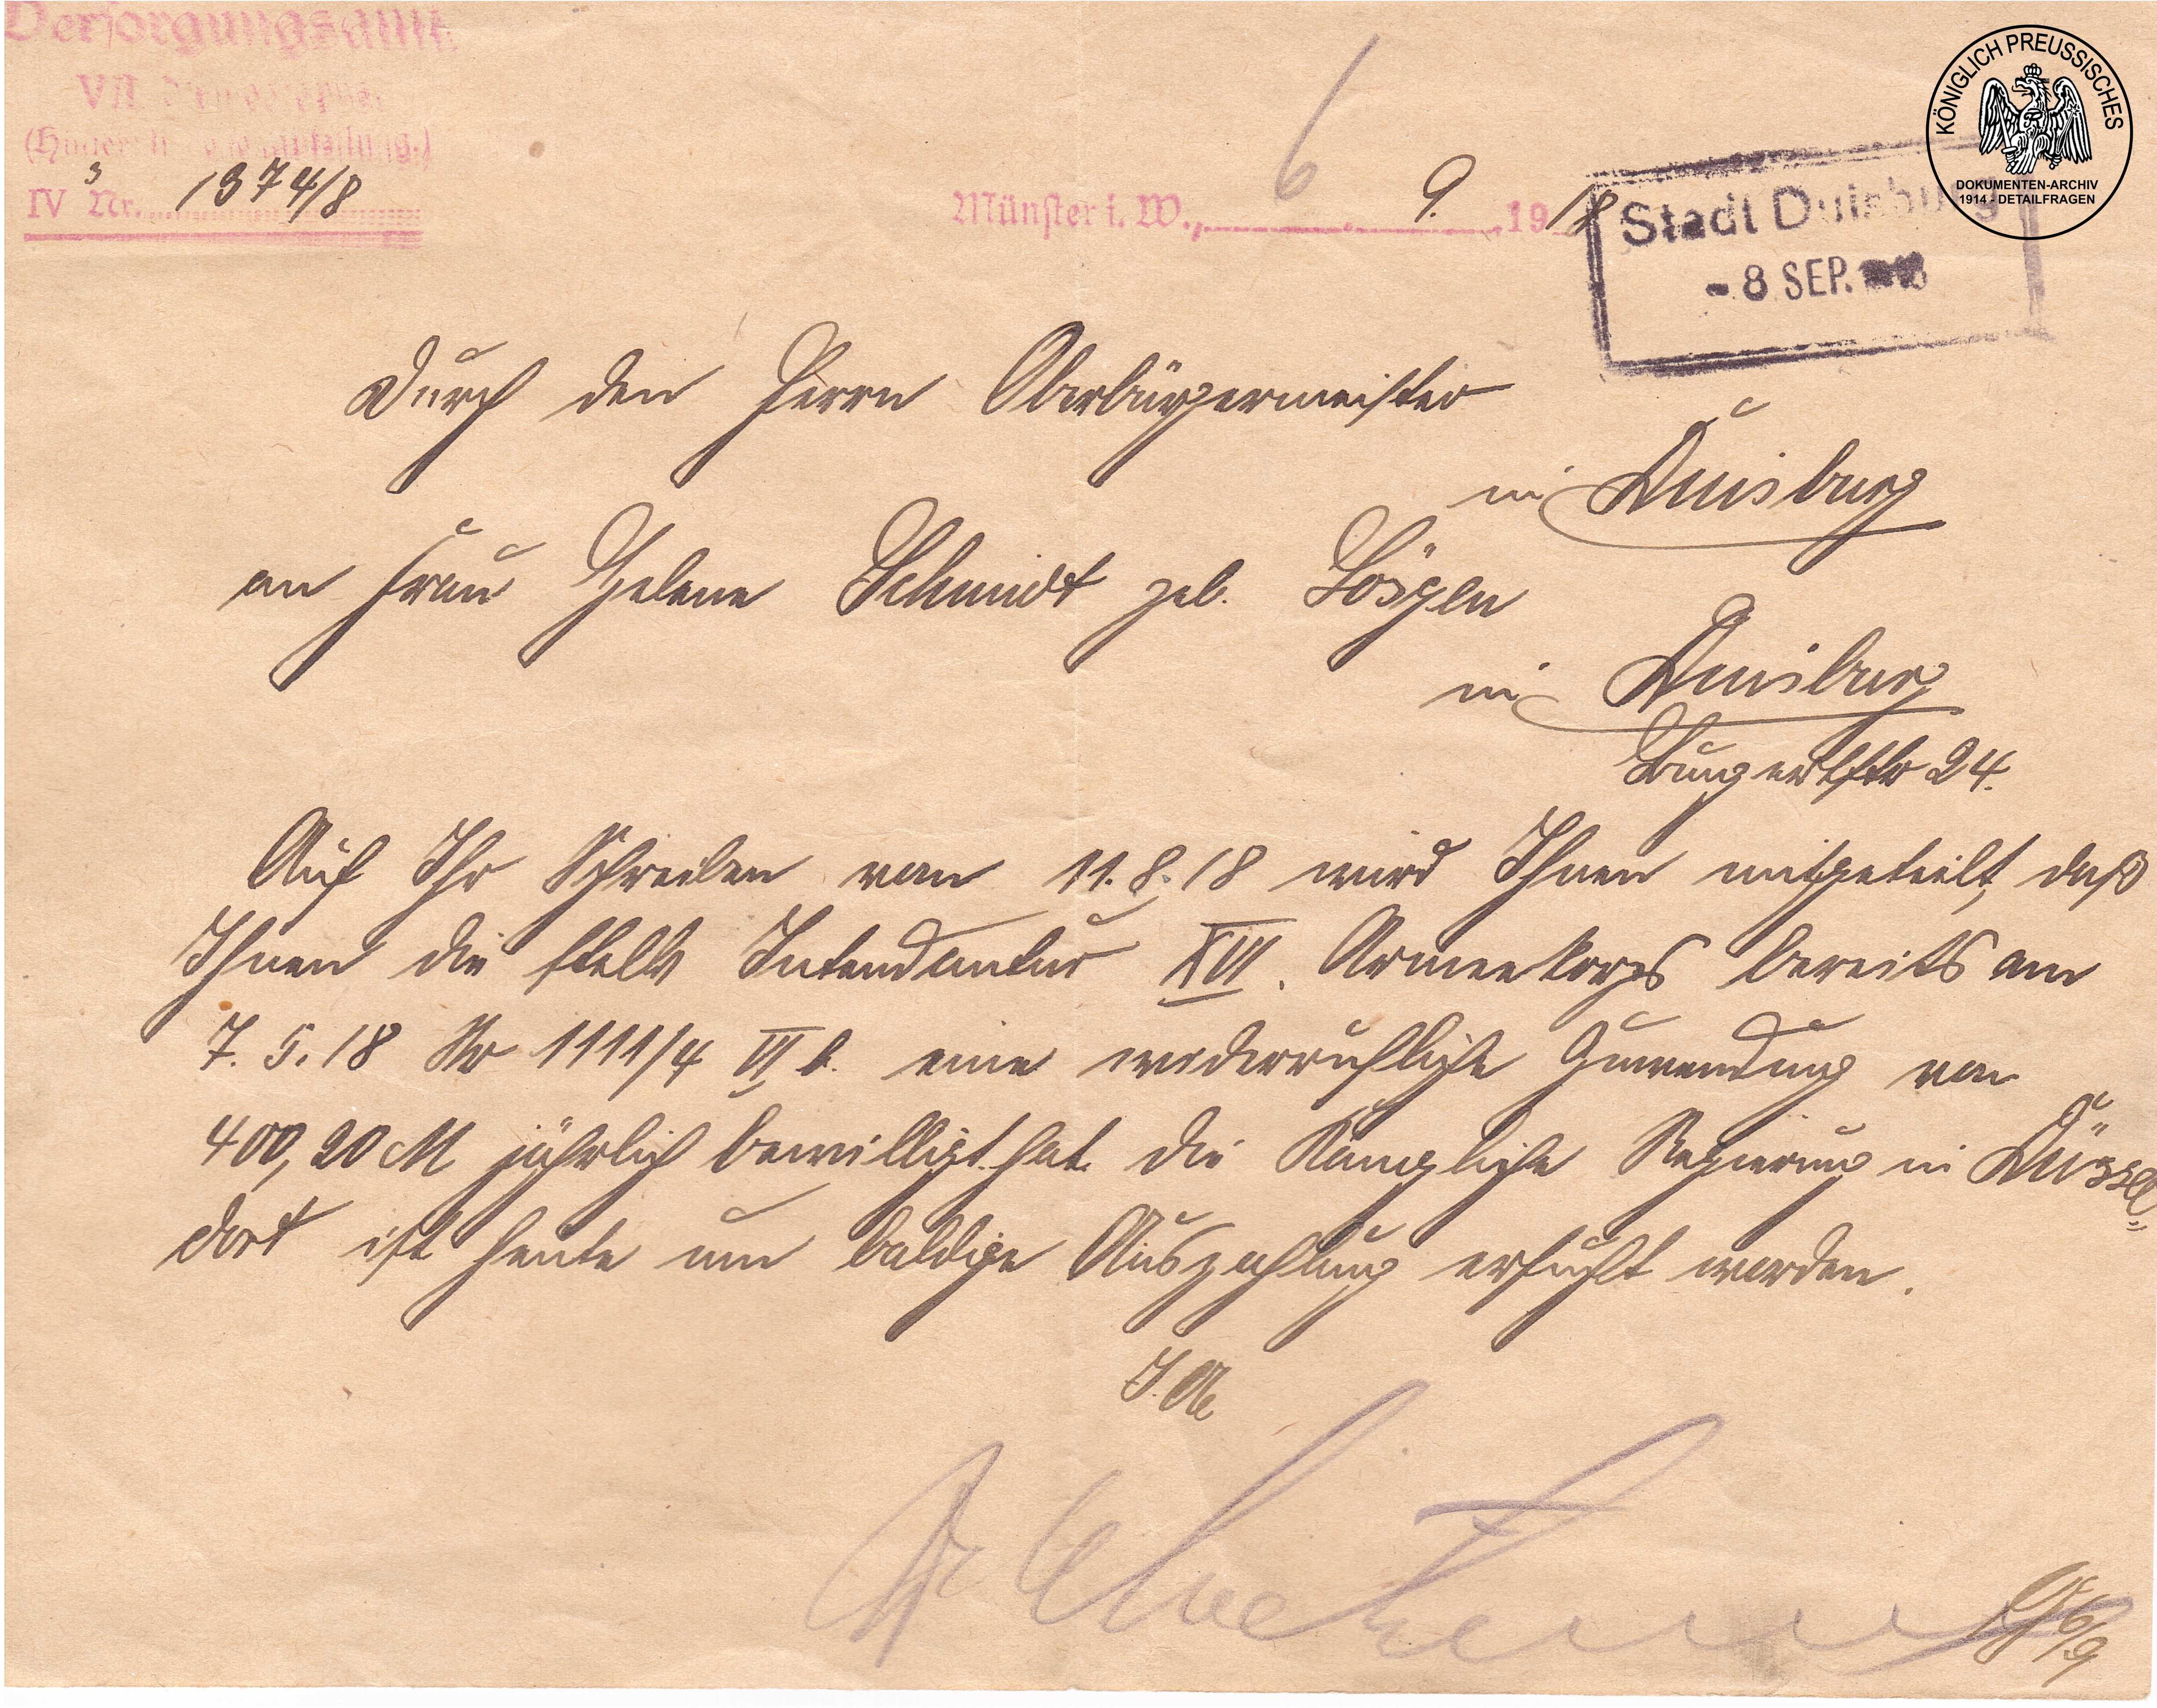 Versorgungsamt
VII. Armeekorps.
(Hinterbl. abteilung.)
IV 3 Nr. 1374/8
Münster i. W., 6. 9. 1918
Stadt Duisburg
- 8 SEP.
KÖNIGLICH PREUSSISCHES
DOKUMENTEN-ARCHIV
1914 - DETAILFRAGEN
Durch den Herrn Oberbürgermeister
in Duisburg
an Frau Helene Schmidt geb. Lösgen
in Duisburg
24.
Auf Ihr Schreiben vom 11.8.18 wird Ihnen mitgeteilt, daß
Ihnen die stellv Intendantur Armeekorps bereits am
7.5.18 Nr 1111/4 VI b. eine widerrufliche Zuwendung von
400,20 M jährlich bewilligt hat. Die Königliche Regierung in Düssel=
dorf ist heute um baldige Auszahlung ersucht worden.
J. A.
6/9